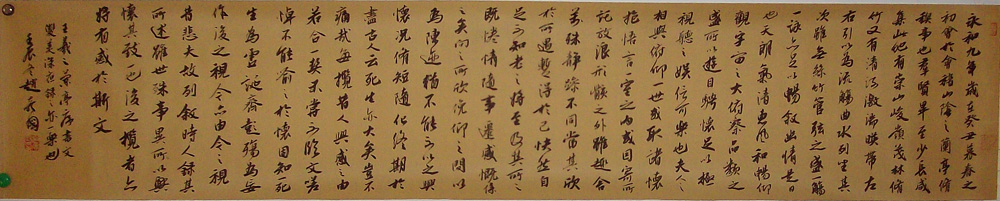 永和九年歲在癸丑暮春之
初會於會稽山陰之蘭亭脩
禊事也群賢畢至少長咸
集此地有崇山峻嶺茂林脩
竹又有清流激湍映帶左
右引以為流觴曲水列坐其
次雖無絲竹管弦之盛一觴
一詠亦足以暢敘幽情是日
也天朗氣清惠風和暢仰
觀宇宙之大俯察品類之
盛所以遊目騁懷足以極
視聽之娛信可樂也夫人之
相與俯仰一世或取諸懷
抱悟言一室之內或因寄所
託放浪形骸之外雖趣舍
萬殊靜躁不同當其欣
於所遇暫得於己快然自
足不知老之將至及其所之
既倦情隨事遷感慨係
之矣向之所欣俛仰之間以
為陳迹猶不能不以之興
懷況脩短隨化終期於
盡古人云死生亦大矣豈不
痛哉每攬昔人興感之由
若合一契未嘗不臨文嗟
悼不能喻之於懷固知死
生為虛誕齊彭殤為妄
作後之視今亦由今之視
昔悲夫故列敘時人錄其
所述雖世殊事異所以興
懷其致一也後之攬者亦
將有感於斯文
王羲之蘭亭序書文
雙美一樂也
壬辰冬趙國